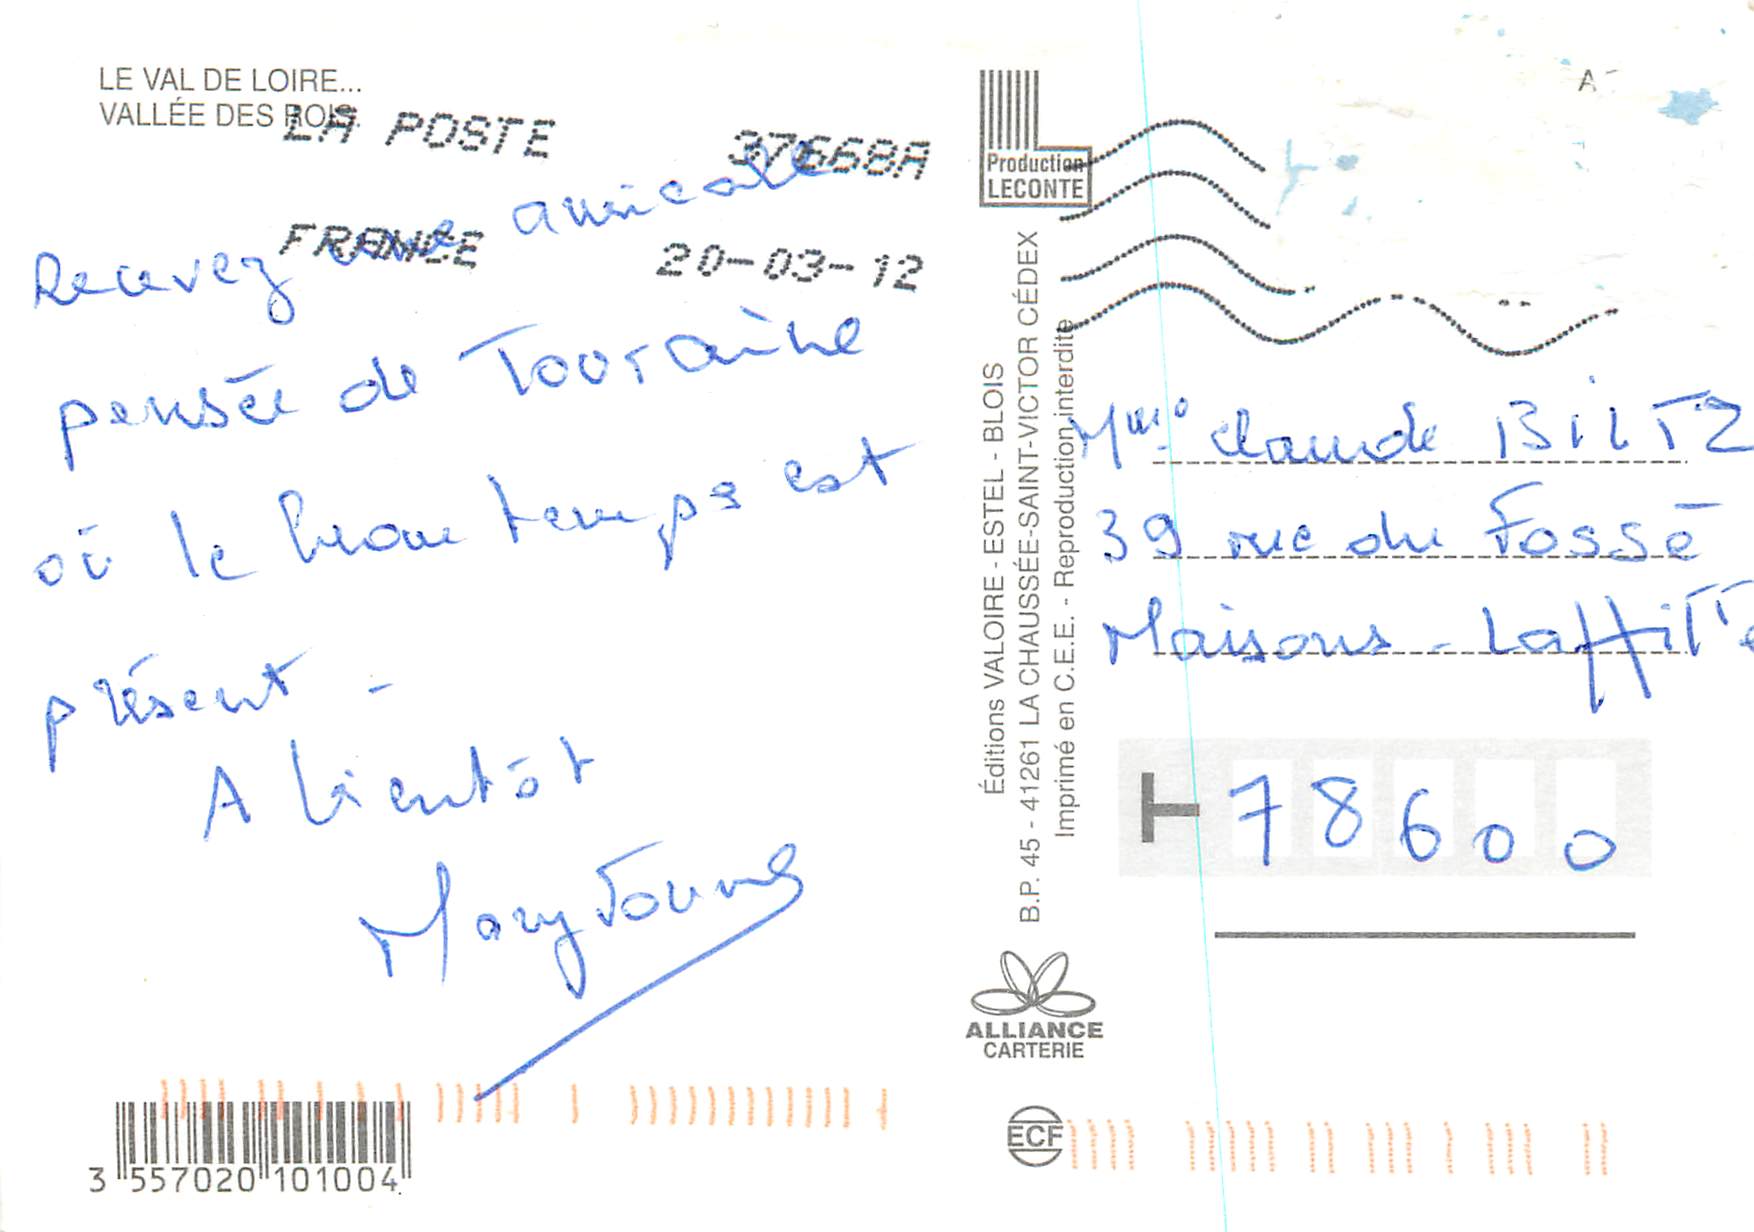 LE VAL DE LOIRE...
VALLÉE DES ROIS.
LA POSTE 37668A
FRANCE 20-03-12
Recevez une amicale
pensée de Touraine
où le beau temps est
présent -
A bientôt
Production
LECONTE
Éditions VALOIRE - ESTEL - BLOIS
B.P. 45 - 41261 LA CHAUSSÉE-SAINT-VICTOR CÉDEX
Imprimé en C.E.E. - Reproduction interdite
Claude BILTZ
39 rue du Fossé
Maisons-Laffitte
78600
ALLIANCE
CARTERIE
ECF
3 557020 101004